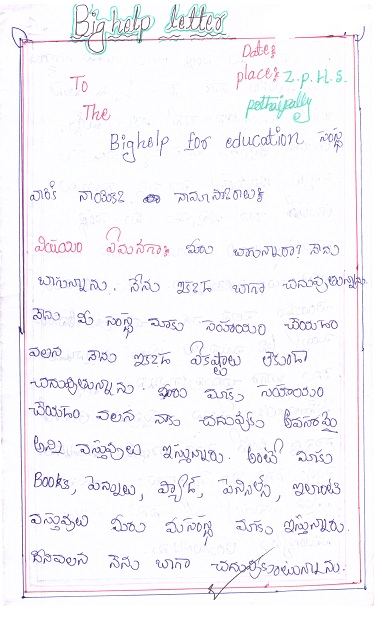 Bighelp letter
Date:
To place: Z.P.H.S.
The pethaipally
Bighelp for education సంస్థ
వారికి నాయొక్క నామస్కారాలు
విషయం ఏమనగా: మీరు బాగున్నారా? నేను
బాగున్నాను. నేను ఇక్కడ బాగా చదువుతున్నాను.
నేను మీ సంస్థ మాకు సహాయం చేయడం
వలన నేను ఇక్కడ ఏకష్టాలు లేకుండా
చదువుతున్నాను. మీరు మాకు సహాయం
చేయడం వలన నాకు చదువుకు అవసరమై
అన్ని వస్తువులు ఇస్తున్నారు. అంటే మాకు
Books, పెన్నులు, ప్యాడ్, పెన్సిల్స్, ఇలాంటి
వస్తువులు మీరు మీసంస్థ మాకు ఇస్తున్నారు.
దీనివలన నేను బాగా చదువుకుంటున్నాను.